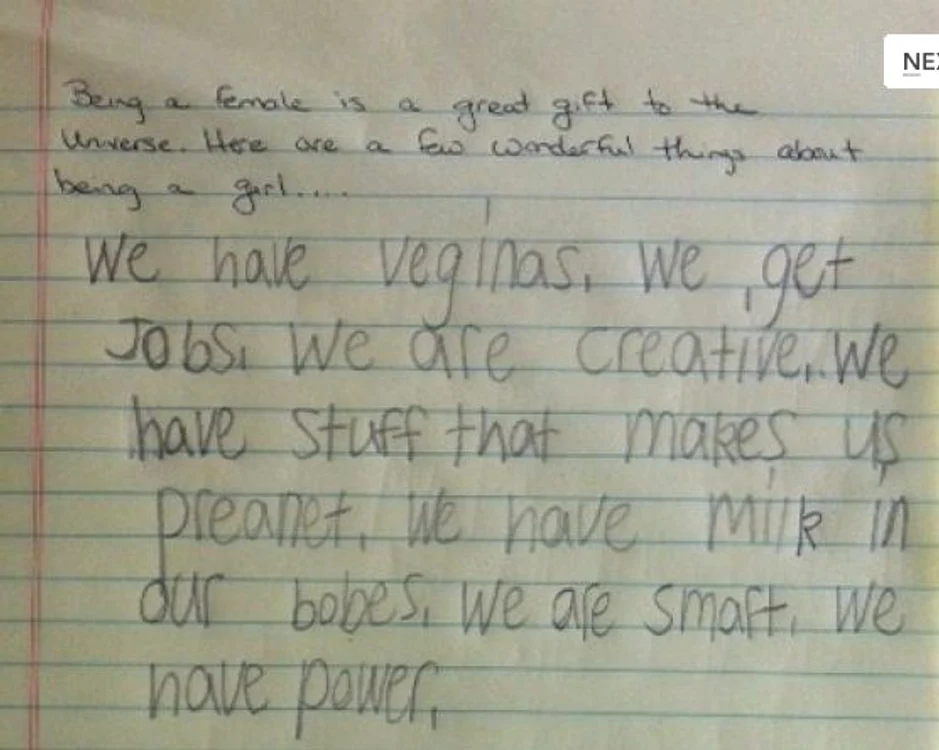 NEX
Being a female is a great gift to the
Universe. Here are a few wonderful things about
being a girl....
We have veginas. We get
Jobs. We are creative. We
have stuff that makes us
preanet. We have milk in
our bobes. We are smart. We
have power.